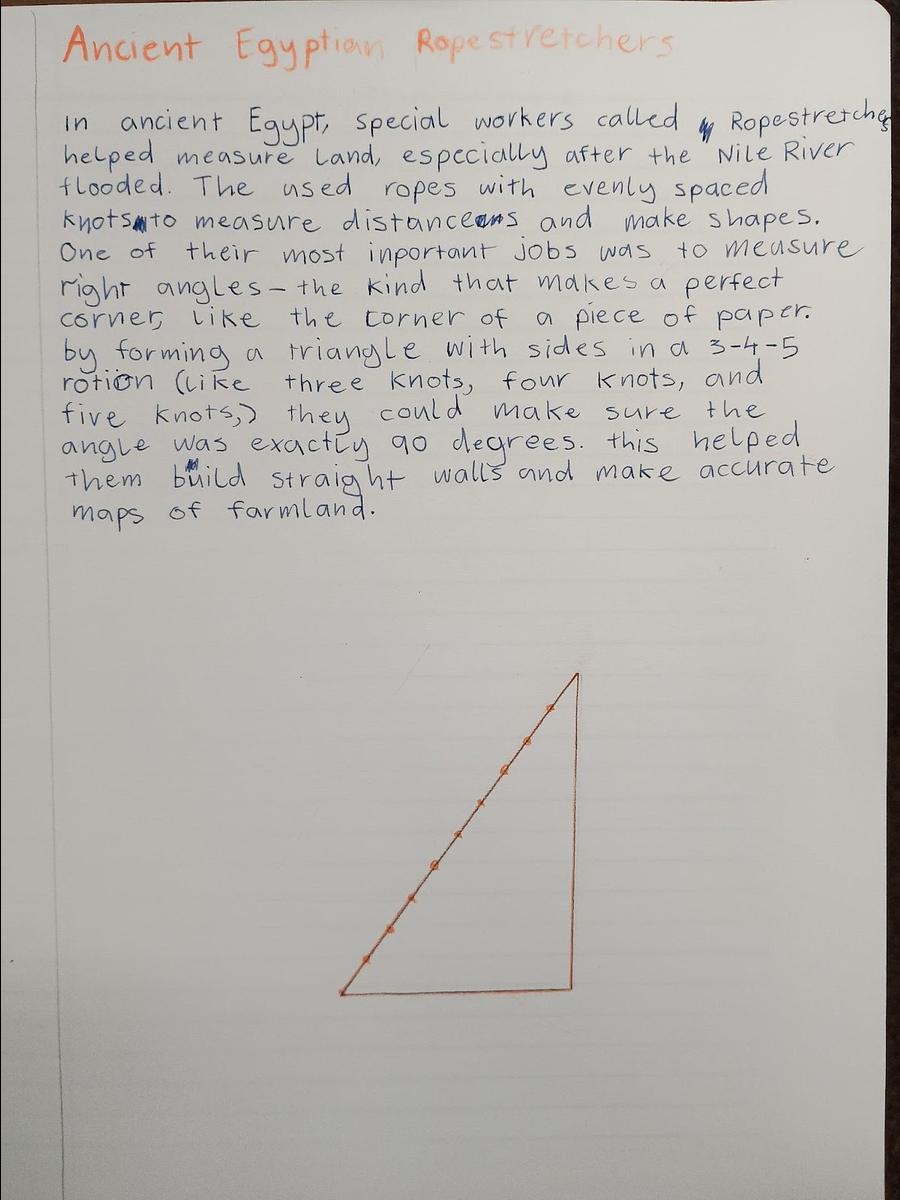 Ancient Egyptian Ropestretchers
In ancient Egypt, special workers called Ropestretchers
helped measure land, especially after the Nile River
flooded. The used ropes with evenly spaced
knots to measure distances and make shapes.
One of their most inportant jobs was to measure
right angles – the kind that makes a perfect
corner, like the corner of a piece of paper.
by forming a triangle with sides in a 3-4-5
rotion (like three knots, four knots, and
five knots,) they could make sure the
angle was exactly 90 degrees. this helped
them build straight walls and make accurate
maps of farmland.